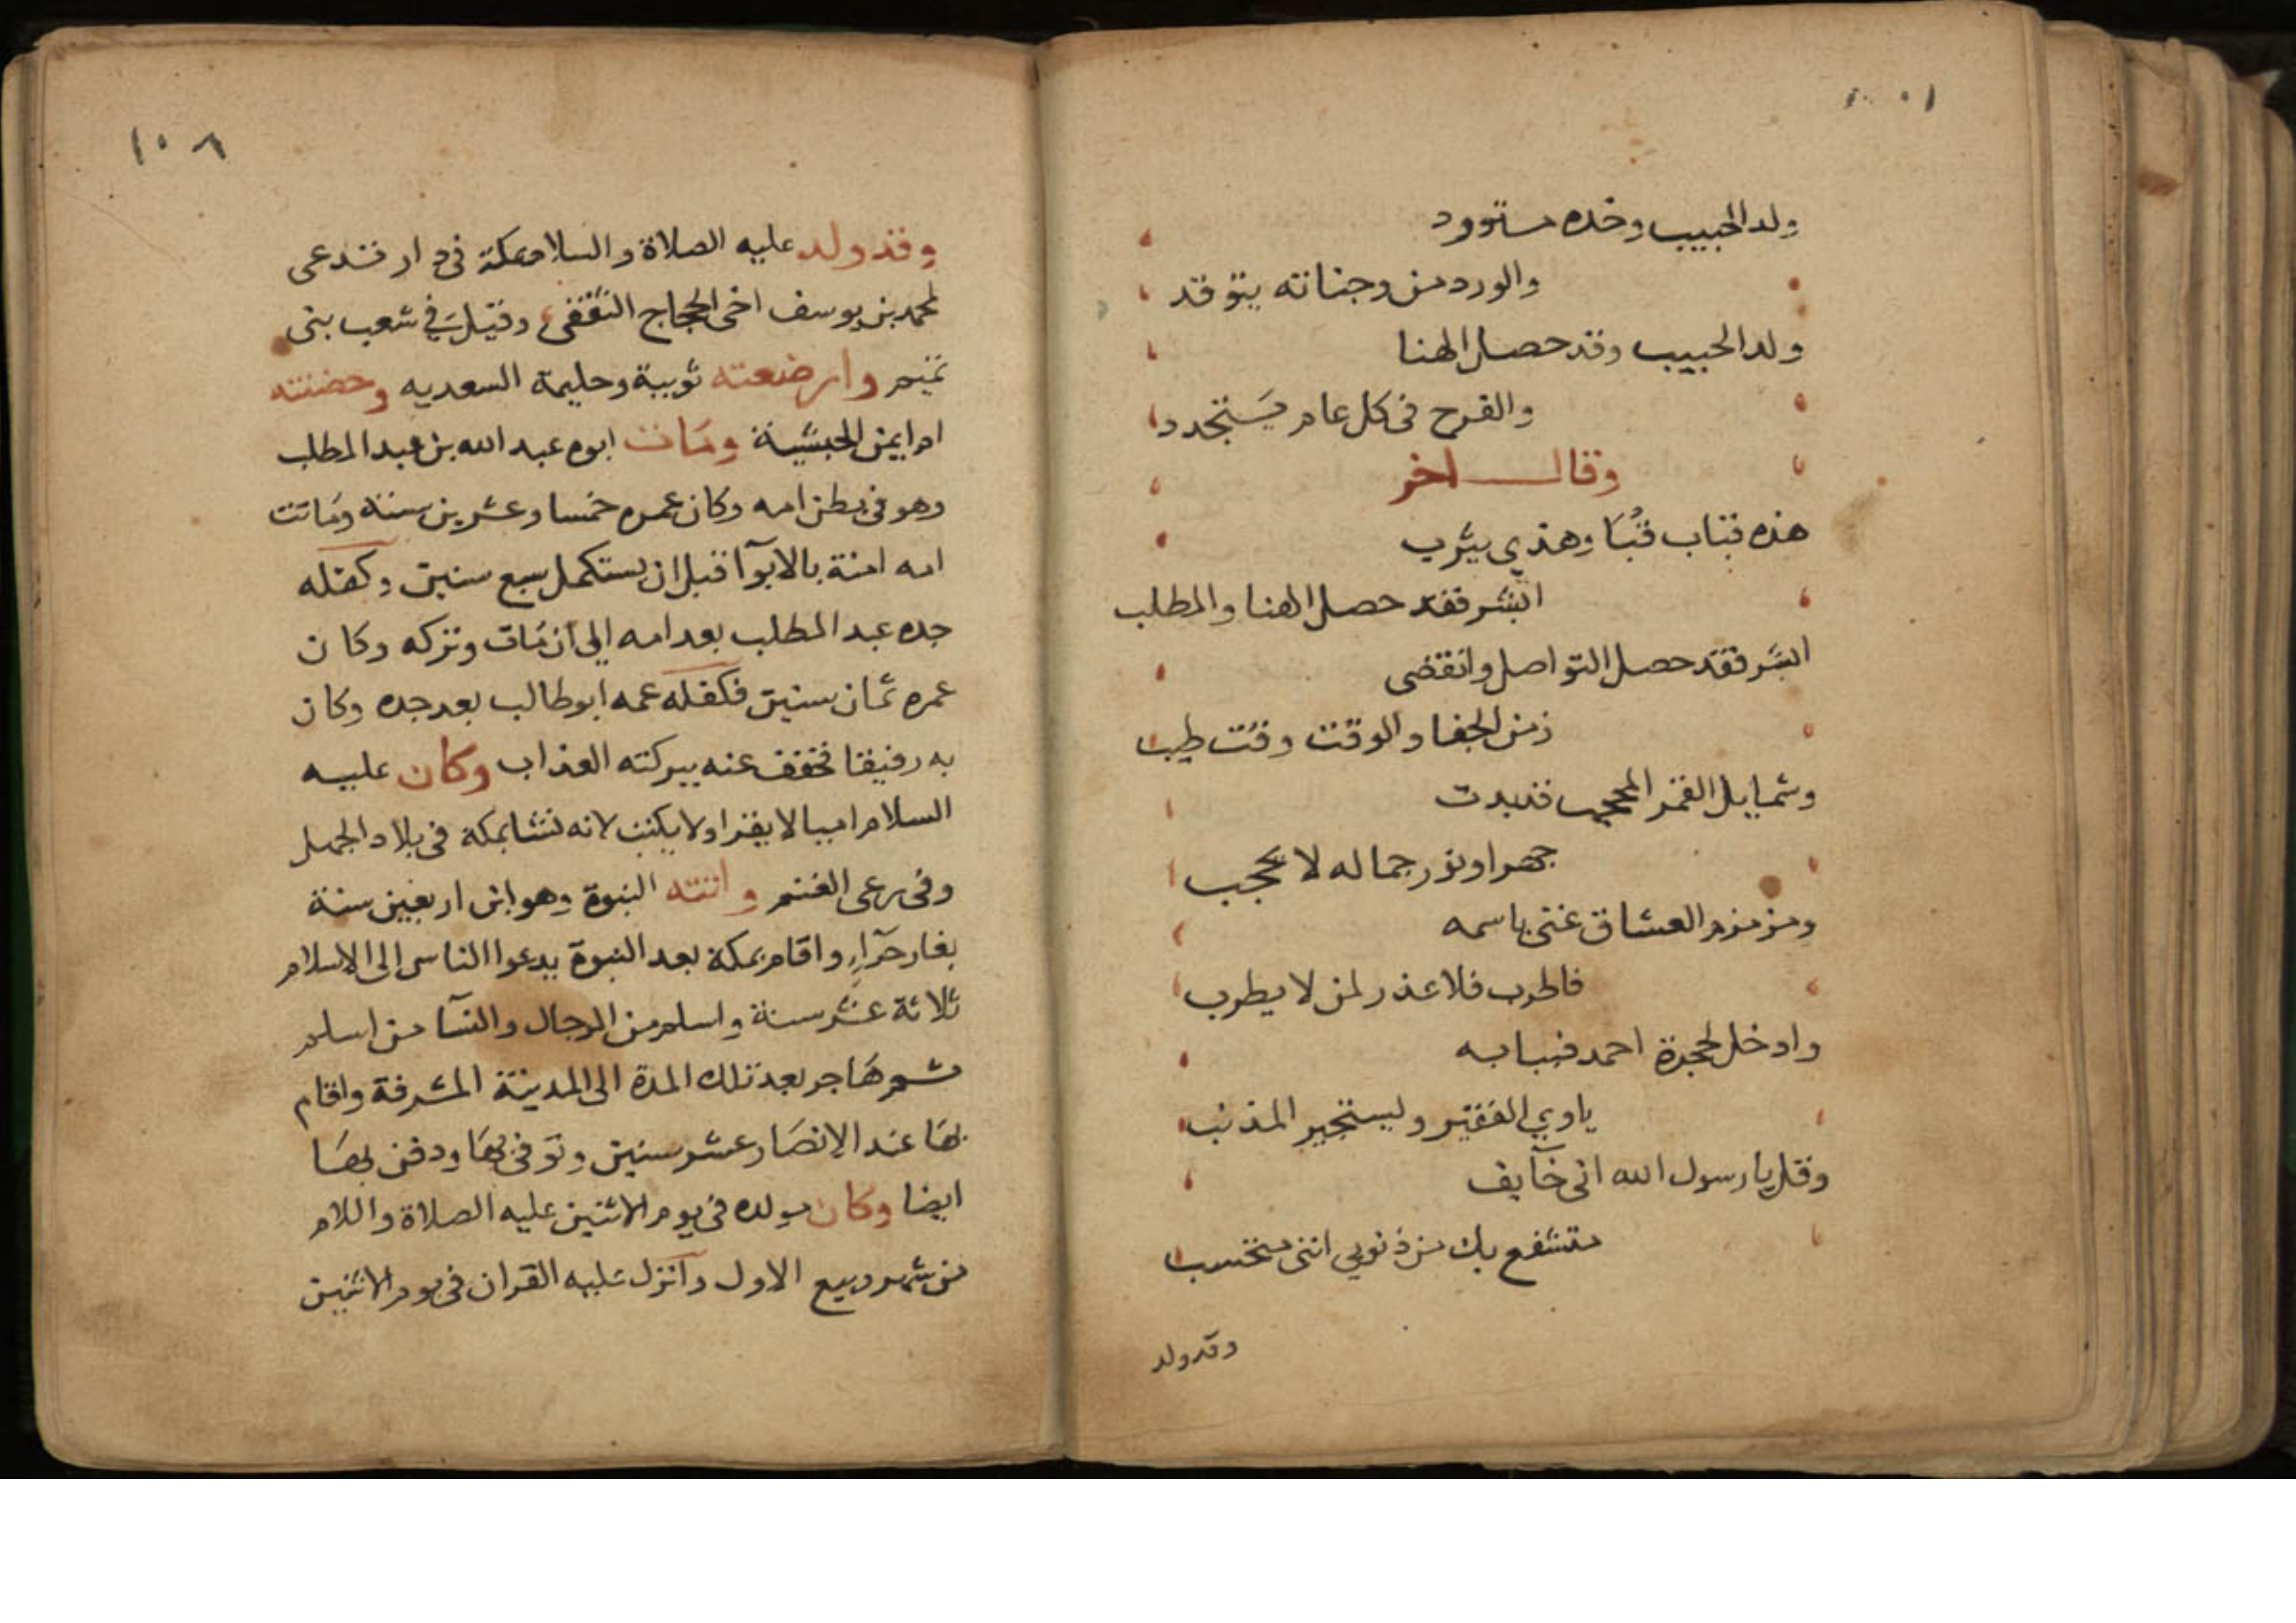 ولد الحبيب وخده متورد
والورد من وجناته يتوقد
ولد الحبيب وقد حصل الهنا
والفرح فى كل عام يستجدد
وقال اخر
هذه قباب قبا وهذي يثرب
ابشر فقد حصل الهنا والمطلب
ابشر فقد حصل التواصل وانقضى
زمن الجفا والوقت وقت طيب
وشمايل القمر المحجب قد بدت
جهرا ونور جماله لا يحجب
ومزمزم العشاق غنى باسمه
فاطرب فلا عذر لمن لا يطرب
وادخل لحجرة احمد فببابه
ياوي الفقير وليستجير المذنب
وقل يا رسول الله انى خآيف
متشفع بك من ذنوبي اننى محتسب
وقد ولد
١٠٨
وقد ولد عليه الصلاة والسلام بمكة فى دار تدعى
لمحمد بن يوسف اخى الحجاج الثقفى وقيل في شعب بنى
تميم وارضعته ثويبة وحليمة السعديه وحضنته
ام ايمن الحبشية ومات ابوه عبد الله بن عبد المطلب
وهو فى بطن امه وكان عمره خمسا وعشرين سنة وماتت
امه امنة بالابوآ قبل ان يستكمل سبع سنين وكفله
جده عبد المطلب بعد امه إلى ان مات وتركه وكان
عمره ثمان سنين فكفله عمه ابو طالب بعد جده وكان
به رفيقا فخفف عنه ببركته العذاب وكان عليه
السلام اميا لا يقرا ولا يكتب لانه نشا بمكة فى بلاد الجهل
وفى رعى الغنم واتته النبوة وهو ابن اربعين سنة
بغار حرآء واقام بمكة بعد النبوة يدعوا الناس إلى الاسلام
ثلاثة عشر سنة واسلم من الرجال والنسآ من اسلم
ثم هاجر بعد تلك المدة الى المدينة المشرفة واقام
بها عند الانصار عشر سنين وتوفى بها ودفن بها
ايضا وكان مولده فى يوم الاثنين عليه الصلاة واللام
من شهر ربيع الاول وانزل عليه القران فى يوم الاثنين